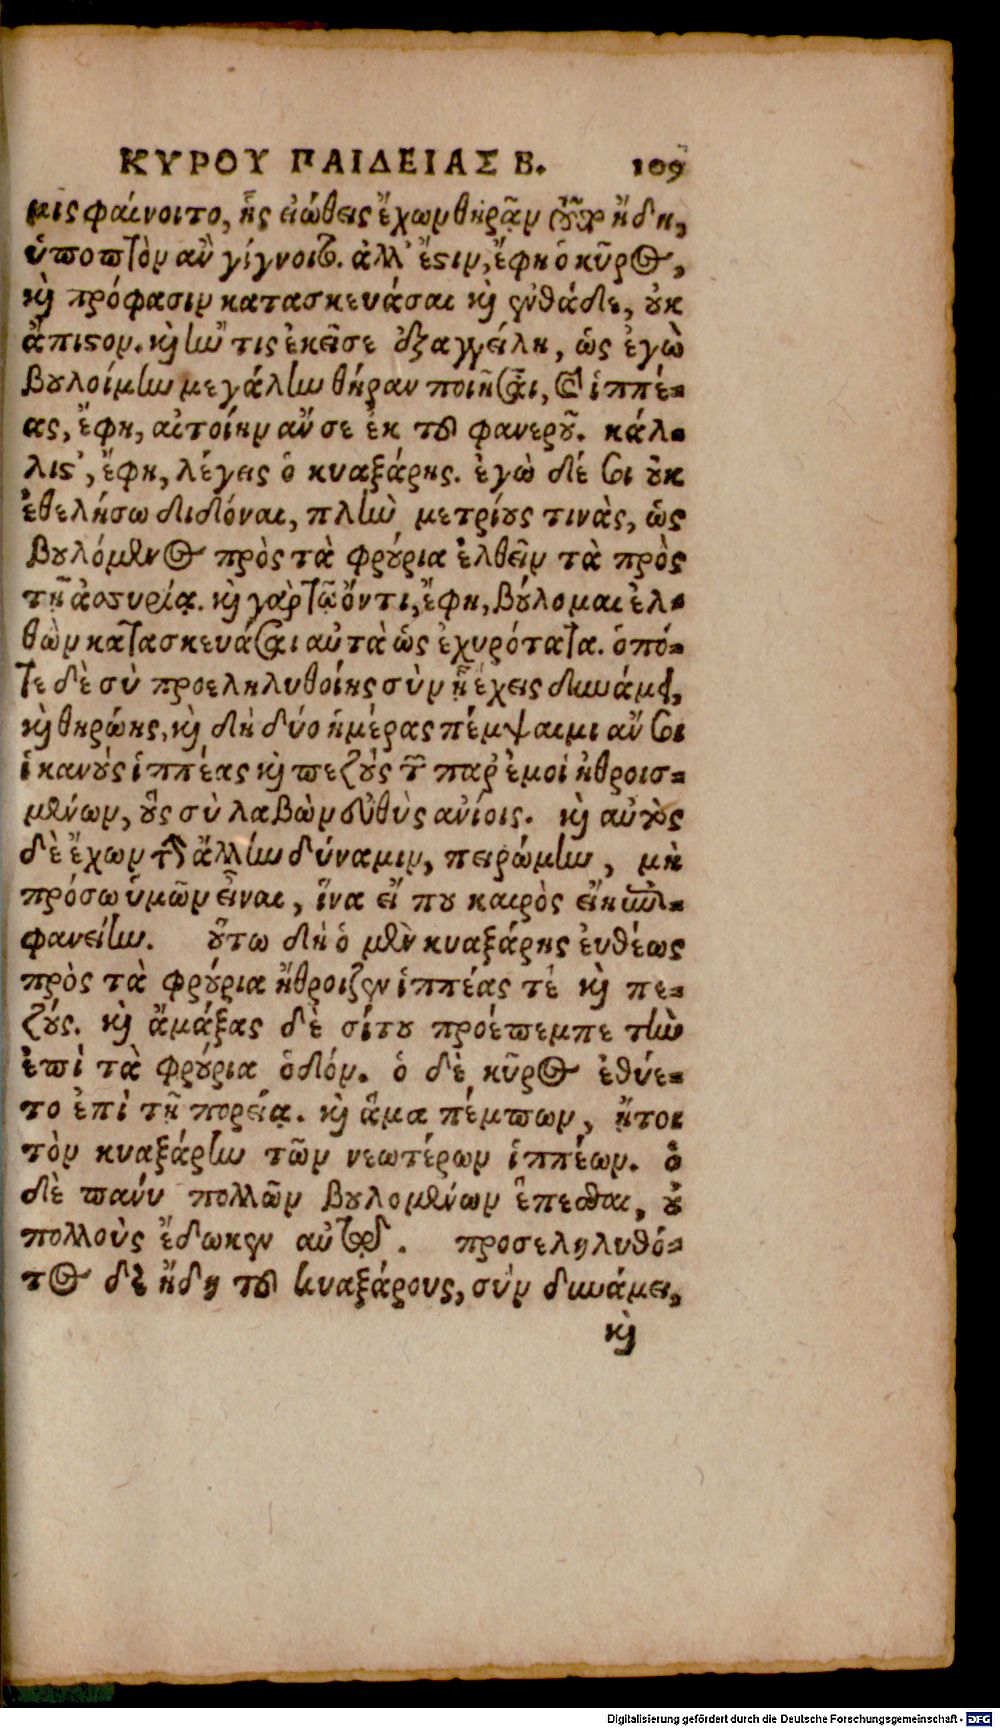 ΚΥΡΟΥ ΠΑΙΔΕΙΑΣ Β. 109
μις φαίνοιτο, ἧς εἰώθεις ἔχων θηρᾷν τοῦτο ἤδη,
ὑποπτὸν ἂν γίγνοιτο. ἀλλ' ἔστιν, ἔφη ὁ κῦρος,
καὶ πρόφασιν κατασκευάσαι καὶ ἐνθάδε, οὐκ
ἄπιστον. καὶ ἤν τις ἐκεῖσε ἐξαγγείλη, ὡς ἐγὼ
βουλοίμην μεγάλην θήραν ποιῆσαι, καὶ ἱππέ-
ας, ἔφη, αἰτοίην ἄν σε ἐκ τοῦ φανεροῦ. κάλ-
λιστ', ἔφη, λέγεις ὁ κυαξάρης. ἐγὼ δέ σοι οὐκ
ἐθελήσω διδόναι, πλὴν μετρίους τινὰς, ὡς
βουλόμενος πρὸς τὰ φρούρια ἐλθεῖν τὰ πρὸς
τῇ ἀσσυρίᾳ. καὶ γὰρ τῷ ὄντι, ἔφη, βούλομαι ἐλ-
θὼν κατασκευάσαι αὐτὰ ὡς ἐχυρότατα. ὁπό-
τε δὲ σὺ προεληλυθοίης σὺν ᾗ ἔχεις δυνάμει,
καὶ θηρώης, καὶ δὴ δύο ἡμέρας πέμψαιμι ἄν σοι
ἱκανοὺς ἱππέας καὶ πεζοὺς τῶν παρ' ἐμοὶ ἠθροισ-
μένων, οὓς σὺ λαβὼν εὐθὺς ἀνίοις. καὶ αὐτὸς
δὲ ἔχων τὴν ἄλλην δύναμιν, πειρώμην, μὴ
πρόσω ὑμῶν εἶναι, ἵνα εἴ που καιρὸς εἴη ἐπι-
φανείην. οὕτω δὴ ὁ μὲν κυαξάρης ἐυθέως
πρὸς τὰ φρούρια ἤθροιζεν ἱππέας τὲ καὶ πε-
ζούς. καὶ ἁμάξας δὲ σίτου προέπεμπε τὴν
ἐπὶ τὰ φρούρια ὁδόν. ὁ δὲ κῦρος ἐθύε-
το ἐπὶ τῇ πορείᾳ. καὶ ἅμα πέμπων, ᾔτει
τὸν κυαξάρην τῶν νεωτέρων ἱππέων. ὁ
δὲ πάνυ πολλῶν βουλομένων ἕπεσθαι, οὐ
πολλοὺς ἔδωκεν αὐτῷ. προσεληλυθό-
τος δὲ ἤδη τοῦ κυαξάρους, σὺν δυνάμει,
καὶ
Digitalisierung gefördert durch die Deutsche Forschungsgemeinschaft - DFG